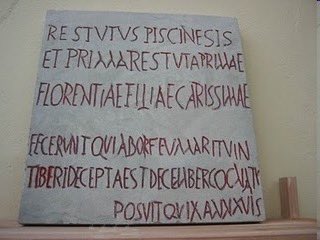 RESTUTUS PISCINESIS
ET PRIMA RESTUTA PRIMAE
FLORENTIAE FILIAE CARISSIMAE
FECERUNT QUI AB ORFEU MARITU IN
TIBERI DECEPTA EST DECEMBER
POSVIT